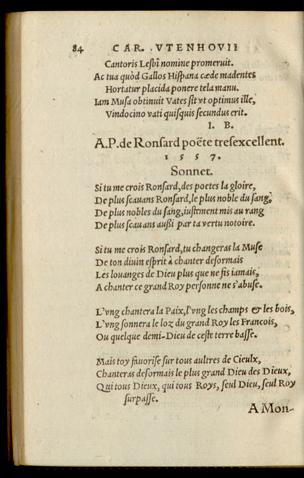 84 CAR. VTENHOVII
Cantoris Lesbi nomine promeruit.
Ac tua quòd Gallos Hispana cæde madentes
Hortatur placida ponere tela manu.
Iam Musa obtinuit Vates sit vt optimus ille,
Vindocino vati quisquis secundus erit.
I. B.
A.P. de Ronsard poëte tresexcellent.
1557.
Sonnet.
Si tu me crois Ronsard, des poetes la gloire,
De plus scauans Ronsard, le plus noble du sang,
De plus nobles du sang, iustement mis au rang
De plus scauans aussi par ta vertu notoire.
Si tu me crois Ronsard, tu changeras la Muse
De ton diuin esprit à chanter desormais
Les louanges de Dieu plus que ne fis iamais,
A chanter ce grand Roy personne ne s'abuse.
L'vng chantera la Paix, l'vng les champs & les bois,
L'vng sonnera le loz du grand Roy les Francois,
Ou quelque demi-Dieu de ceste terre basse.
Mais toy fauorise sur tous aultres de Cieulx,
Chanteras desormais le plus grand Dieu des Dieux,
Qui tous Dieux, qui tous Roys, seul Dieu, seul Roy
surpasse.
A Mon-